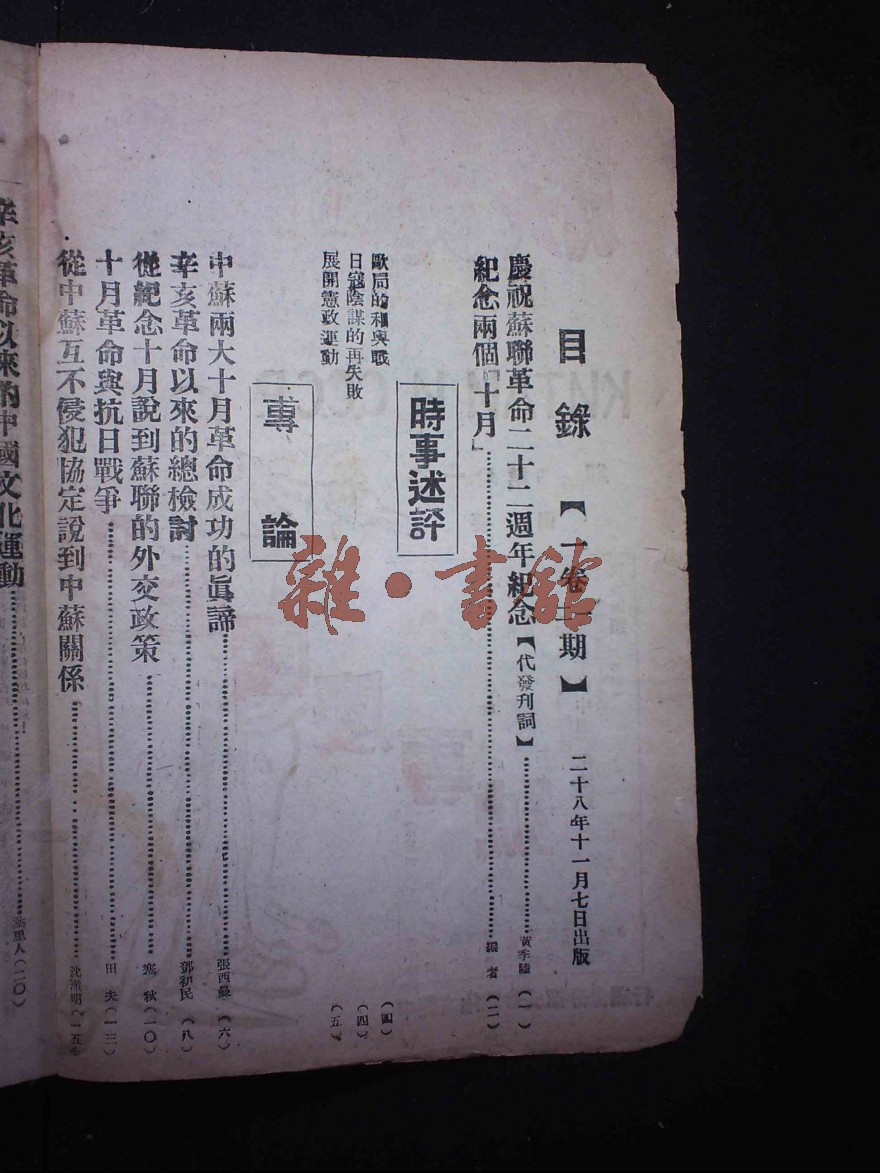 目錄【一卷一期】 二十八年十一月七日出版
慶祝蘇聯革命二十二週年紀念【代發刊詞】 黃季陸（一）
紀念兩個「十月」 編者（二）
時事述評
歐局的和與戰 （四）
日寇陰謀的再失敗 （四）
展開憲政運動 （五）
專論
中蘇兩大十月革命成功的眞諦 張西曼（六）
辛亥革命以來的總檢討 鄧初民（八）
從紀念十月說到蘇聯的外交政策 寒秋（一〇）
十月革命與抗日戰爭 田夫（一三）
從中蘇互不侵犯協定說到中蘇關係 沈澈明（一五）
辛亥革命以來的中國文化運動 人（二〇）
雜·書館